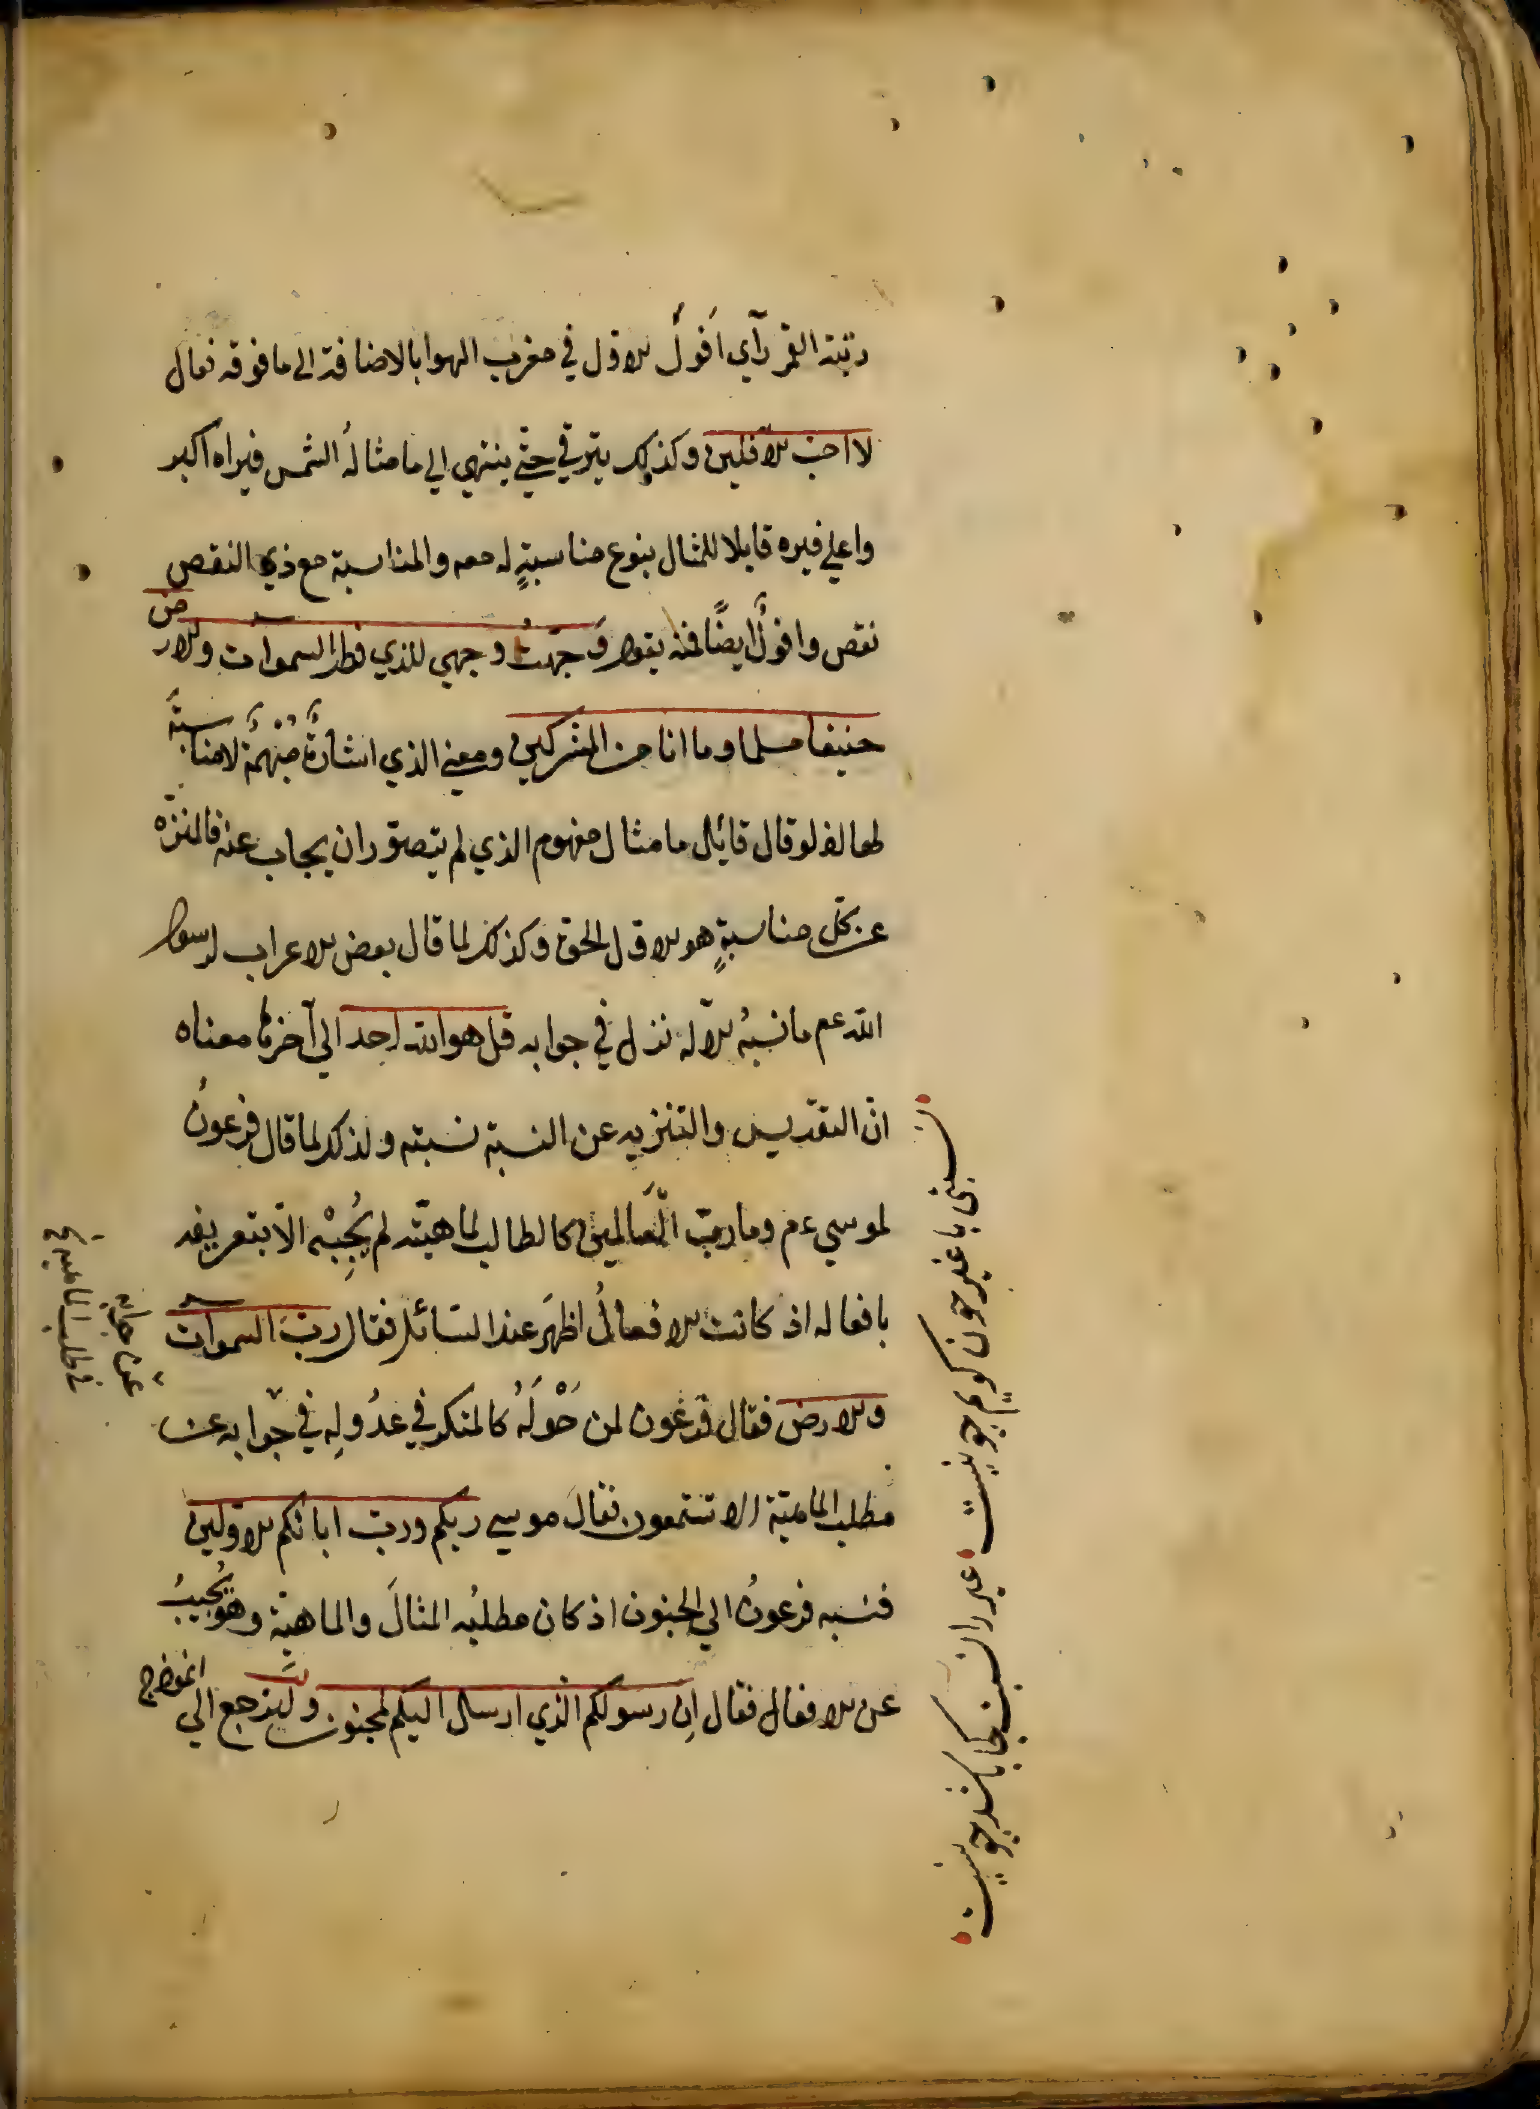 رتبة القمر رآي افول الاول في مغرب الهوا بالاضافة الى ما فوقه فقال
لا احب الافلين وكذلك يترقي حتّي ينتهي الي ما مثاله الشمس فيراه اكبر
واعلي فيره قابلا للمثال بنوع مناسبةٍ له معه والمناسبة مع ذي النقص
نقص وافولٌ ايضًا فمنه يقول وَجهّتُ وجهي للذي فطر السموات والارض
حنيفا مسلما وما انا من المشركين ومعني الذي اشارةٌ مُبْهمةٌ لا مناسبةَ
لها اذ لو قال قائل ما مثال مفهوم الذي لم يتصوّر ان يجاب عنه فالمنزّه
عن كلّ مناسبةٍ هو الاول الحق وكذلك لما قال بعض الاعراب لرسول
الله عم ما نسبُ الاله نزل في جوابه قل هو الله احد الي آخرها معناه
انّ التقديس والتنزيه عن النسبة نسبته ولذلك لما قال فرعونُ
لموسي عم وما ربّ الَعالمين كالطالب لماهيّته لم يُجِبْه الّا بتعريفه
بافعاله اذ كانت الافعالُ اظهرَ عند السّائل فقال ربّ السموات
والارض فقال فرعون لمن حَوْلَهُ كالمنكر في عدُولِه في جوابه عن
مطلب الماهيّة الا تستمعون فقالَ موسي ربكم وربّ ابائكم الاوّلين
فنسبه فرعونُ الي الجنون اذ كان مطلبُه المثالَ والماهيّة وهو يُجيبُ
عن الافعال فقال اِن رسولكم الذي ارسل اليكم لمجنون ولنرجع الي انموذج
عن جوابه
في طلب الماهية
نسبتى با غير چون كويم چو نيست
غير را نسبت كجا باشد چو نيست